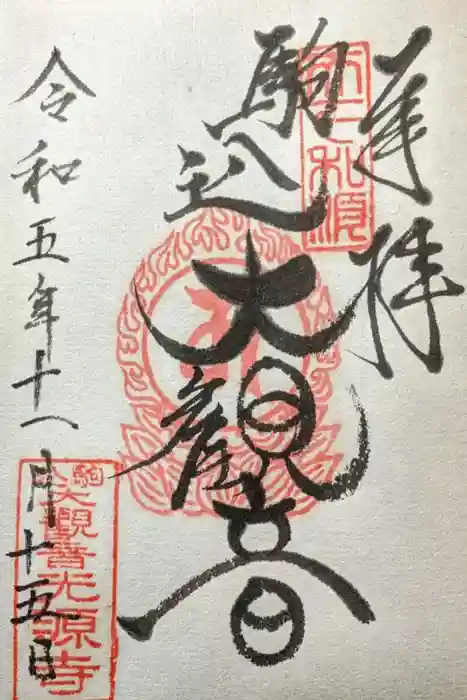 奉拝
江戸札所
駒込
大観音
令和五年十一月十五日
駒込
大觀音光源寺